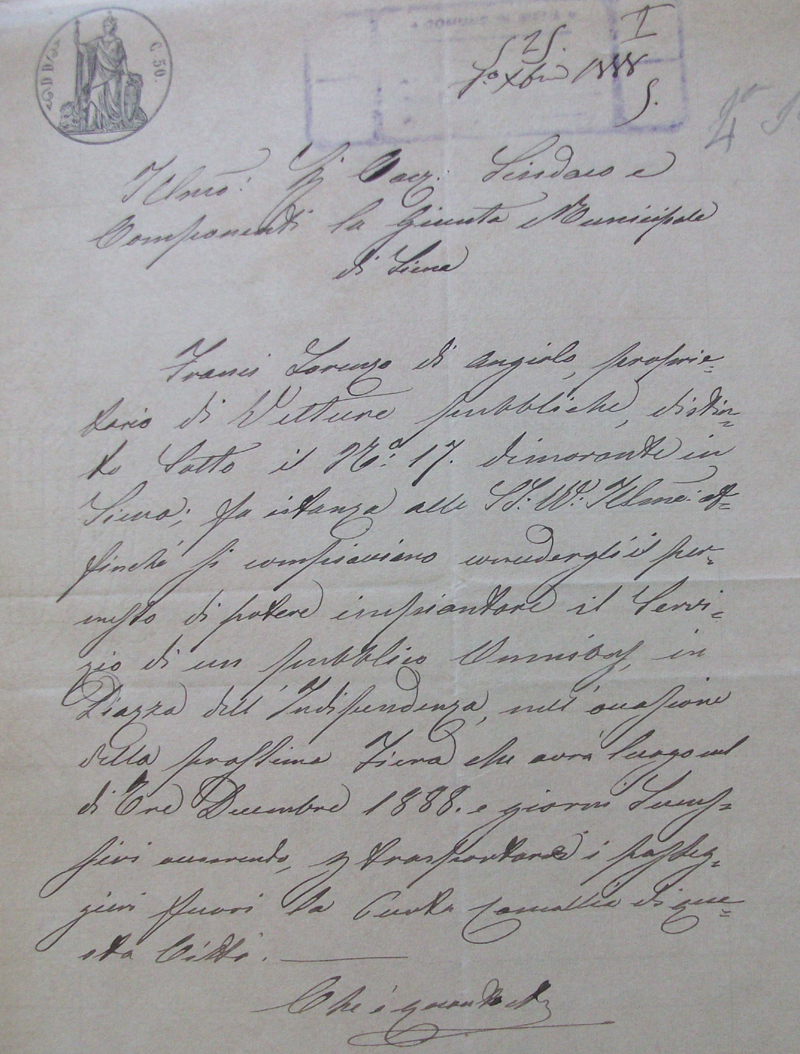 C. 50.
525.
I
1º Xbre 1888
S.
4ª
Illmo: Sig Cav: Sindaco e
Componenti la Giunta Municipale
di Siena
Franci Lorenzo di Angiolo, proprie=
tario di Vetture pubbliche, distin=
to Sotto il No: 17. dimorante in
Siena; fa istanza alle SS. VV. Illme: af=
finché si compiaciano concedergli il per=
messo di potere impiantare il Servi=
zio di un pubblico Omnibus, in
Piazza dell'Indipendenza, nell'occasione
della prossima Fiera che avrà luogo nel
di Tre Decembre 1888. e giorni Succes=
sivi occorrendo, p trasportare i passeg=
gieri fuori la Porta Camollia di que=
sta Città.
Che è quanto